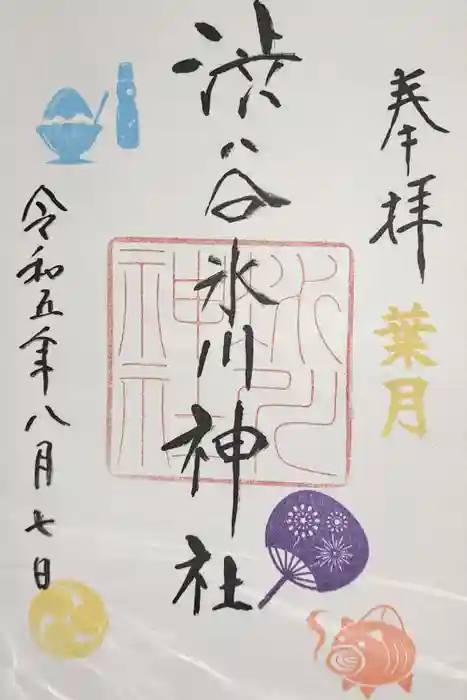 奉拝
葉月
渋谷氷川神社
氷川神社
令和五年八月七日